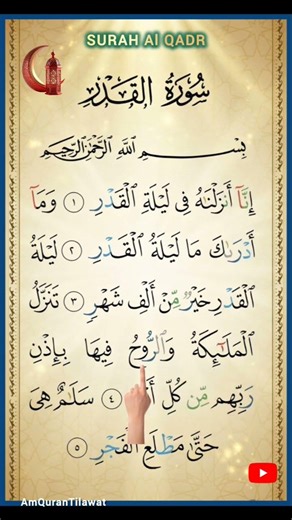 SURAH Al QADR
سُورَةُ القَدْرِ
بِسْمِ اللَّهِ الرَّحْمَٰنِ الرَّحِيمِ
إِنَّآ أَنزَلْنَٰهُ فِى لَيْلَةِ الْقَدْرِ ١ وَمَآ
أَدْرَىٰكَ مَا لَيْلَةُ الْقَدْرِ ٢ لَيْلَةُ
الْقَدْرِ خَيْرٌ مِّنْ أَلْفِ شَهْرٍ ٣ تَنَزَّلُ
الْمَلَٰٓئِكَةُ وَالرُّوحُ فِيهَا بِإِذْنِ
رَبِّهِم مِّن كُلِّ ٤ سَلَٰمٌ هِىَ
حَتَّىٰ مَطْلَعِ الْفَجْرِ ٥
AmQuranTilawat